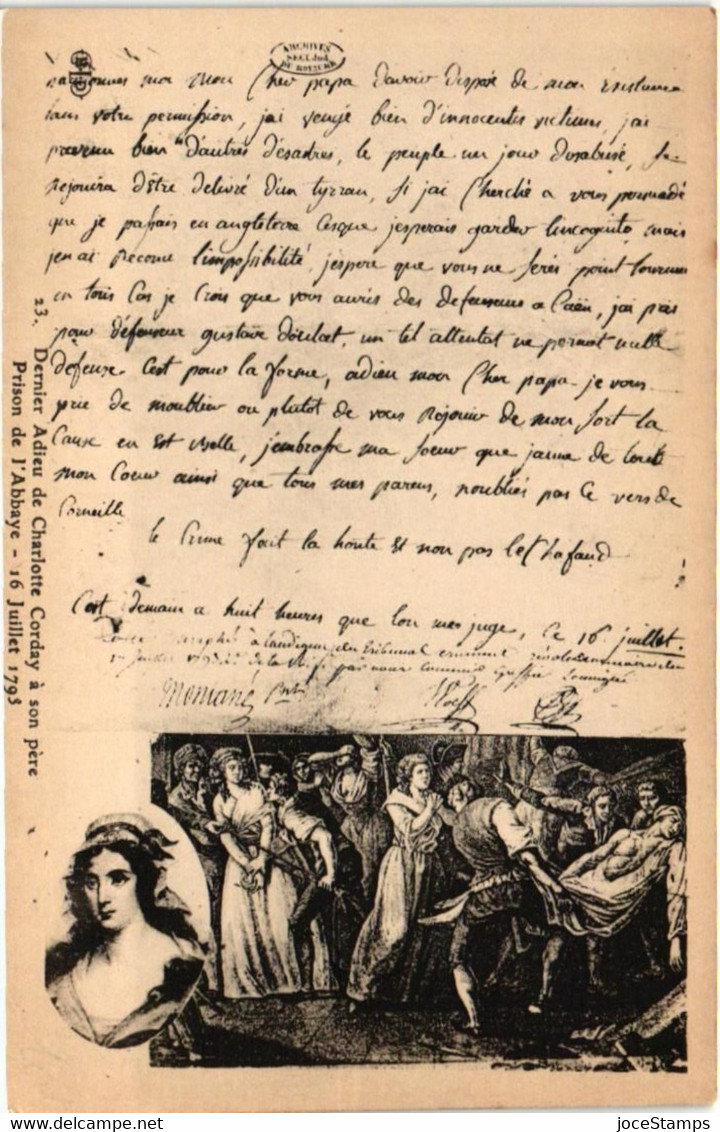 ARCHIVES
SECT. Jud.
DU ROYAUME
pardonnes moi Mon Cher papa davoir disposé de mon Existance
sans votre permission, jai vengé bien d'innocentes victimes, jai
prevenu bien d'autres désastres, le peuple un jour desabusé, se
rejouira d'être delivré d'un tyrran, Si jai Cherché a vous persuadé
que je passais en angleterre Cesque jesperais garder lincognito mais
jen ai reconnu limpossibilité, jespere que vous ne serés point tourmenté
en tous Cas je Crois que vous auriés des defenseurs a Caen, jai pris
pour défenseur gustave doulcet, un tel attentat ne permet nulle
defense Cest pour la forme, adieu mon Cher papa je vous
prie de moublier ou plutot de vous rejouir de mon sort la
Cause en est belle, jembrasse ma soeur que jaime de tout
mon Coeur ainsi que tous mes parens, noubliés pas Ce vers de
Corneille
le Crime fait la honte et non pas lechafaud
Cest demain a huit heures que lon me juge, Ce 16 juillet.
paraphé
tribunal criminel révolutionnaire
par nous
soussigné
Montané
Wolff
23. Dernier Adieu de Charlotte Corday à son père
Prison de l'Abbaye - 16 Juillet 1793
joceStamps